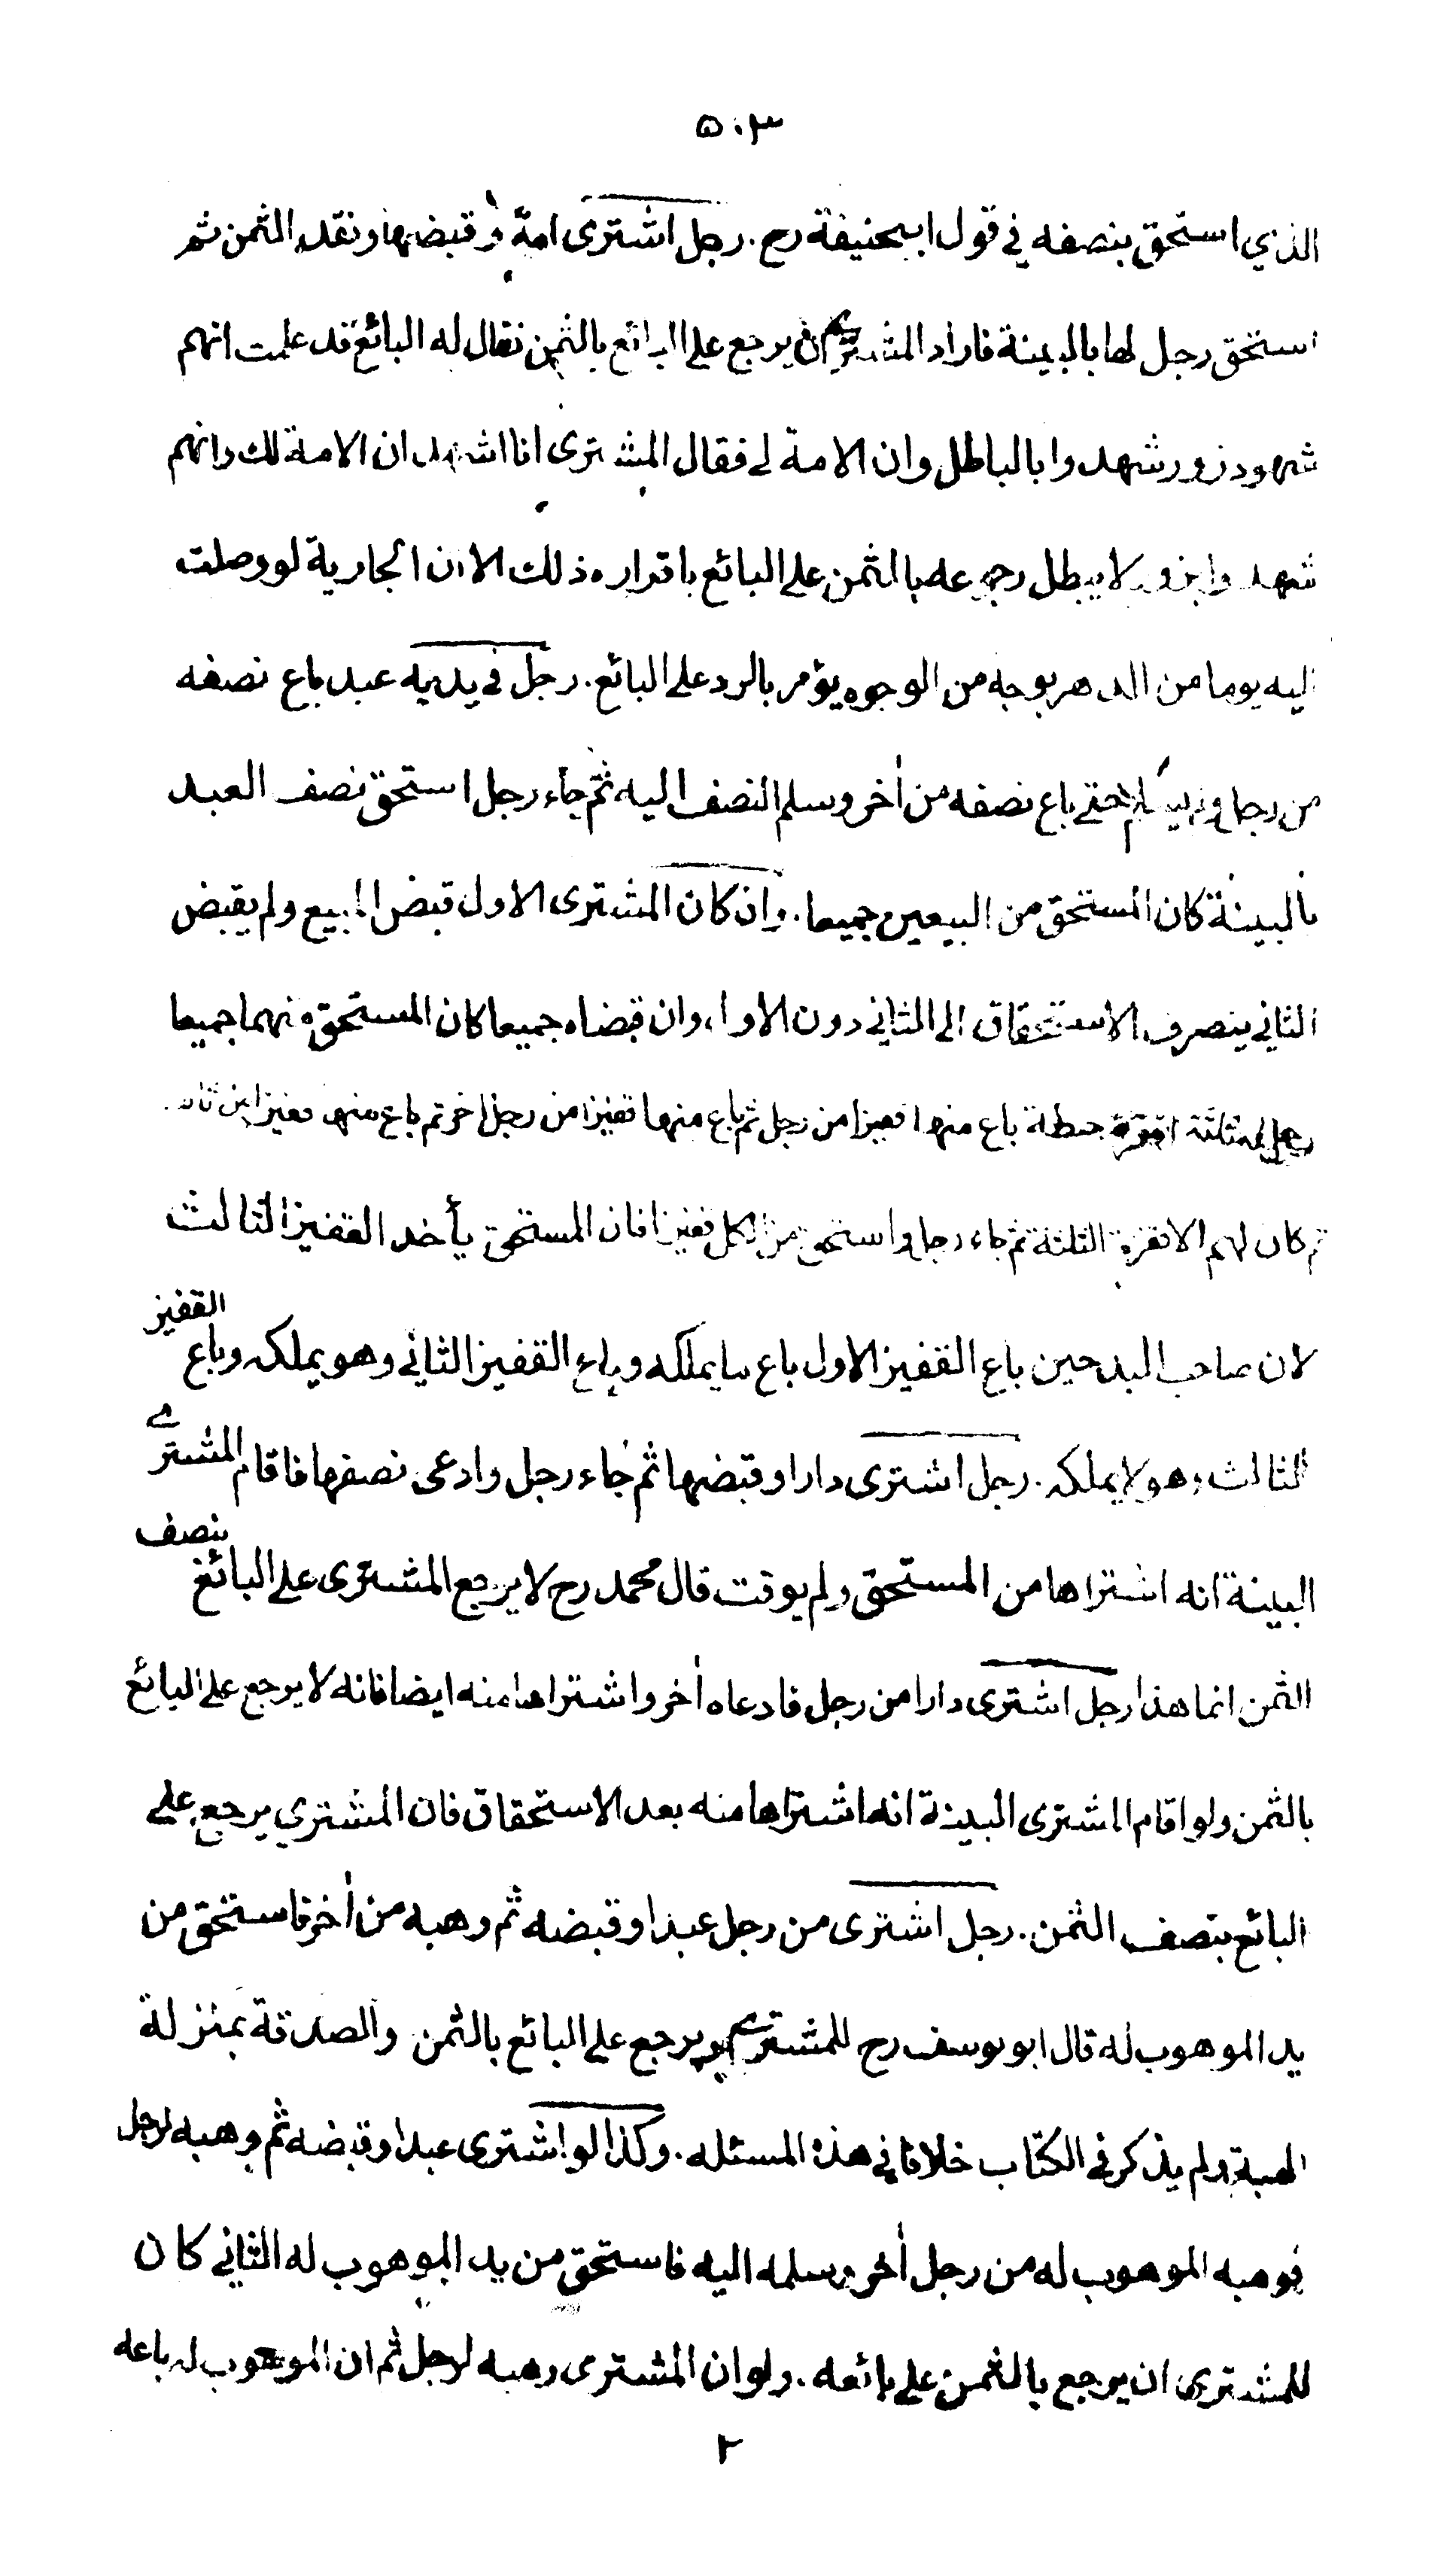 ٥٠٣
الذي استحق بنصفه في قول ابيحنيفة رح. رجل اشترى امة وقبضها ونقد الثمن ثم
استحق رجل لها بالبينة فاراد المشتري ان يرجع على البائع بالثمن فقال له البائع قد علمت انهم
شهود زور شهدوا بالباطل وان الامة لي فقال المشترى انا اشهد ان الامة لك وانهم
شهدوا بزور لا يبطل رجوعه بالثمن على البائع باقراره ذلك الا ان الجارية لو وصلت
اليه يوما من الدهر بوجه من الوجوه يؤمر بالرد على البائع. رجل في يديه عبد باع نصفه
من رجل ولم يسلم حتى باع نصفه من اخر وسلم النصف اليه ثم جاء رجل استحق نصف العبد
بالبينة كان المستحق من البيعين جميعا. وان كان المشترى الاول قبض المبيع ولم يقبض
الثاني ينصرف الاستحقاق الى الثاني دون الاول وان قبضاه جميعا كان المستحق منهما جميعا
رجل له ثلثة اقفزة حنطة باع منها قفيزا من رجل ثم باع منها قفيزا من رجل اخر ثم باع منها قفيزا من
ثم كال لهم الاقفزة الثلثة ثم جاء رجل واستحق من الكل قفيزا فان المستحق يأخذ القفيز الثالث
لان صاحب اليد حين باع القفيز الاول باع ما يملكه وباع القفيز الثاني وهو يملكه وباع القفيز
الثالث وهو لا يملكه. رجل اشترى دارا وقبضها ثم جاء رجل وادعى نصفها فاقام المشتري
البينة انه اشتراها من المستحق ولم يوقت قال محمد رح لا يرجع المشترى على البائع بنصف
الثمن انما هذا رجل اشترى دارا من رجل فادعاه اخر واشتراها منه ايضا فانه لا يرجع على البائع
بالثمن ولو اقام المشترى البينة انه اشتراها منه بعد الاستحقاق فان المشتري يرجع على
البائع بنصف الثمن. رجل اشترى من رجل عبدا وقبضه ثم وهبه من اخر فاستحق من
يد الموهوب له قال ابو يوسف رح للمشتري ان يرجع على البائع بالثمن والصدقة بمنزلة
الهبة ولم يذكر في الكتاب خلافا في هذه المسئله. وكذا لو اشترى عبدا وقبضه ثم وهبه لرجل
فوهبه الموهوب له من رجل اخر وسلمه اليه فاستحق من يد الموهوب له الثاني كان
للمشترى ان يرجع بالثمن على بائعه. ولو ان المشترى وهبه لرجل ثم ان الموهوب له باعه
٢